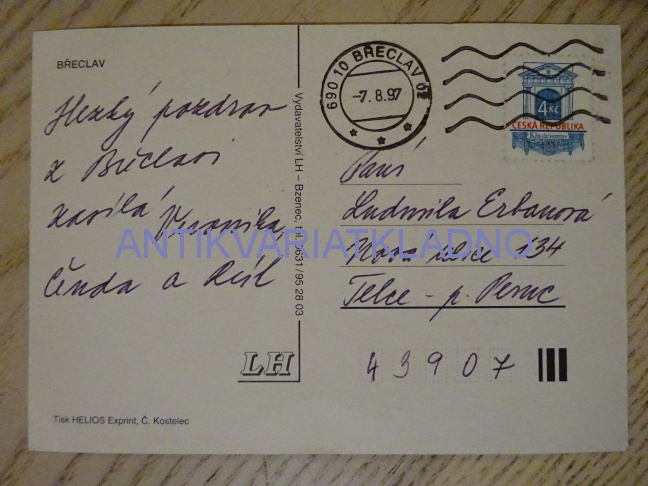 BŘECLAV
Hezký pozdrav
z Břeclavi
zasílá Veronika
Čenda a
Vydavatelství LH – Bzenec, tel. 0631/95 28 03
LH
Tisk HELIOS Exprint, Č. Kostelec
690 10 BŘECLAV 02
-7.8.97
4 Kč
ČESKÁ REPUBLIKA
Klasicismus
Paní
Ludmila Erbanová
Nová ulice 134
Telce - p. Peruc
43907
ANTIKVARIATKLADNO